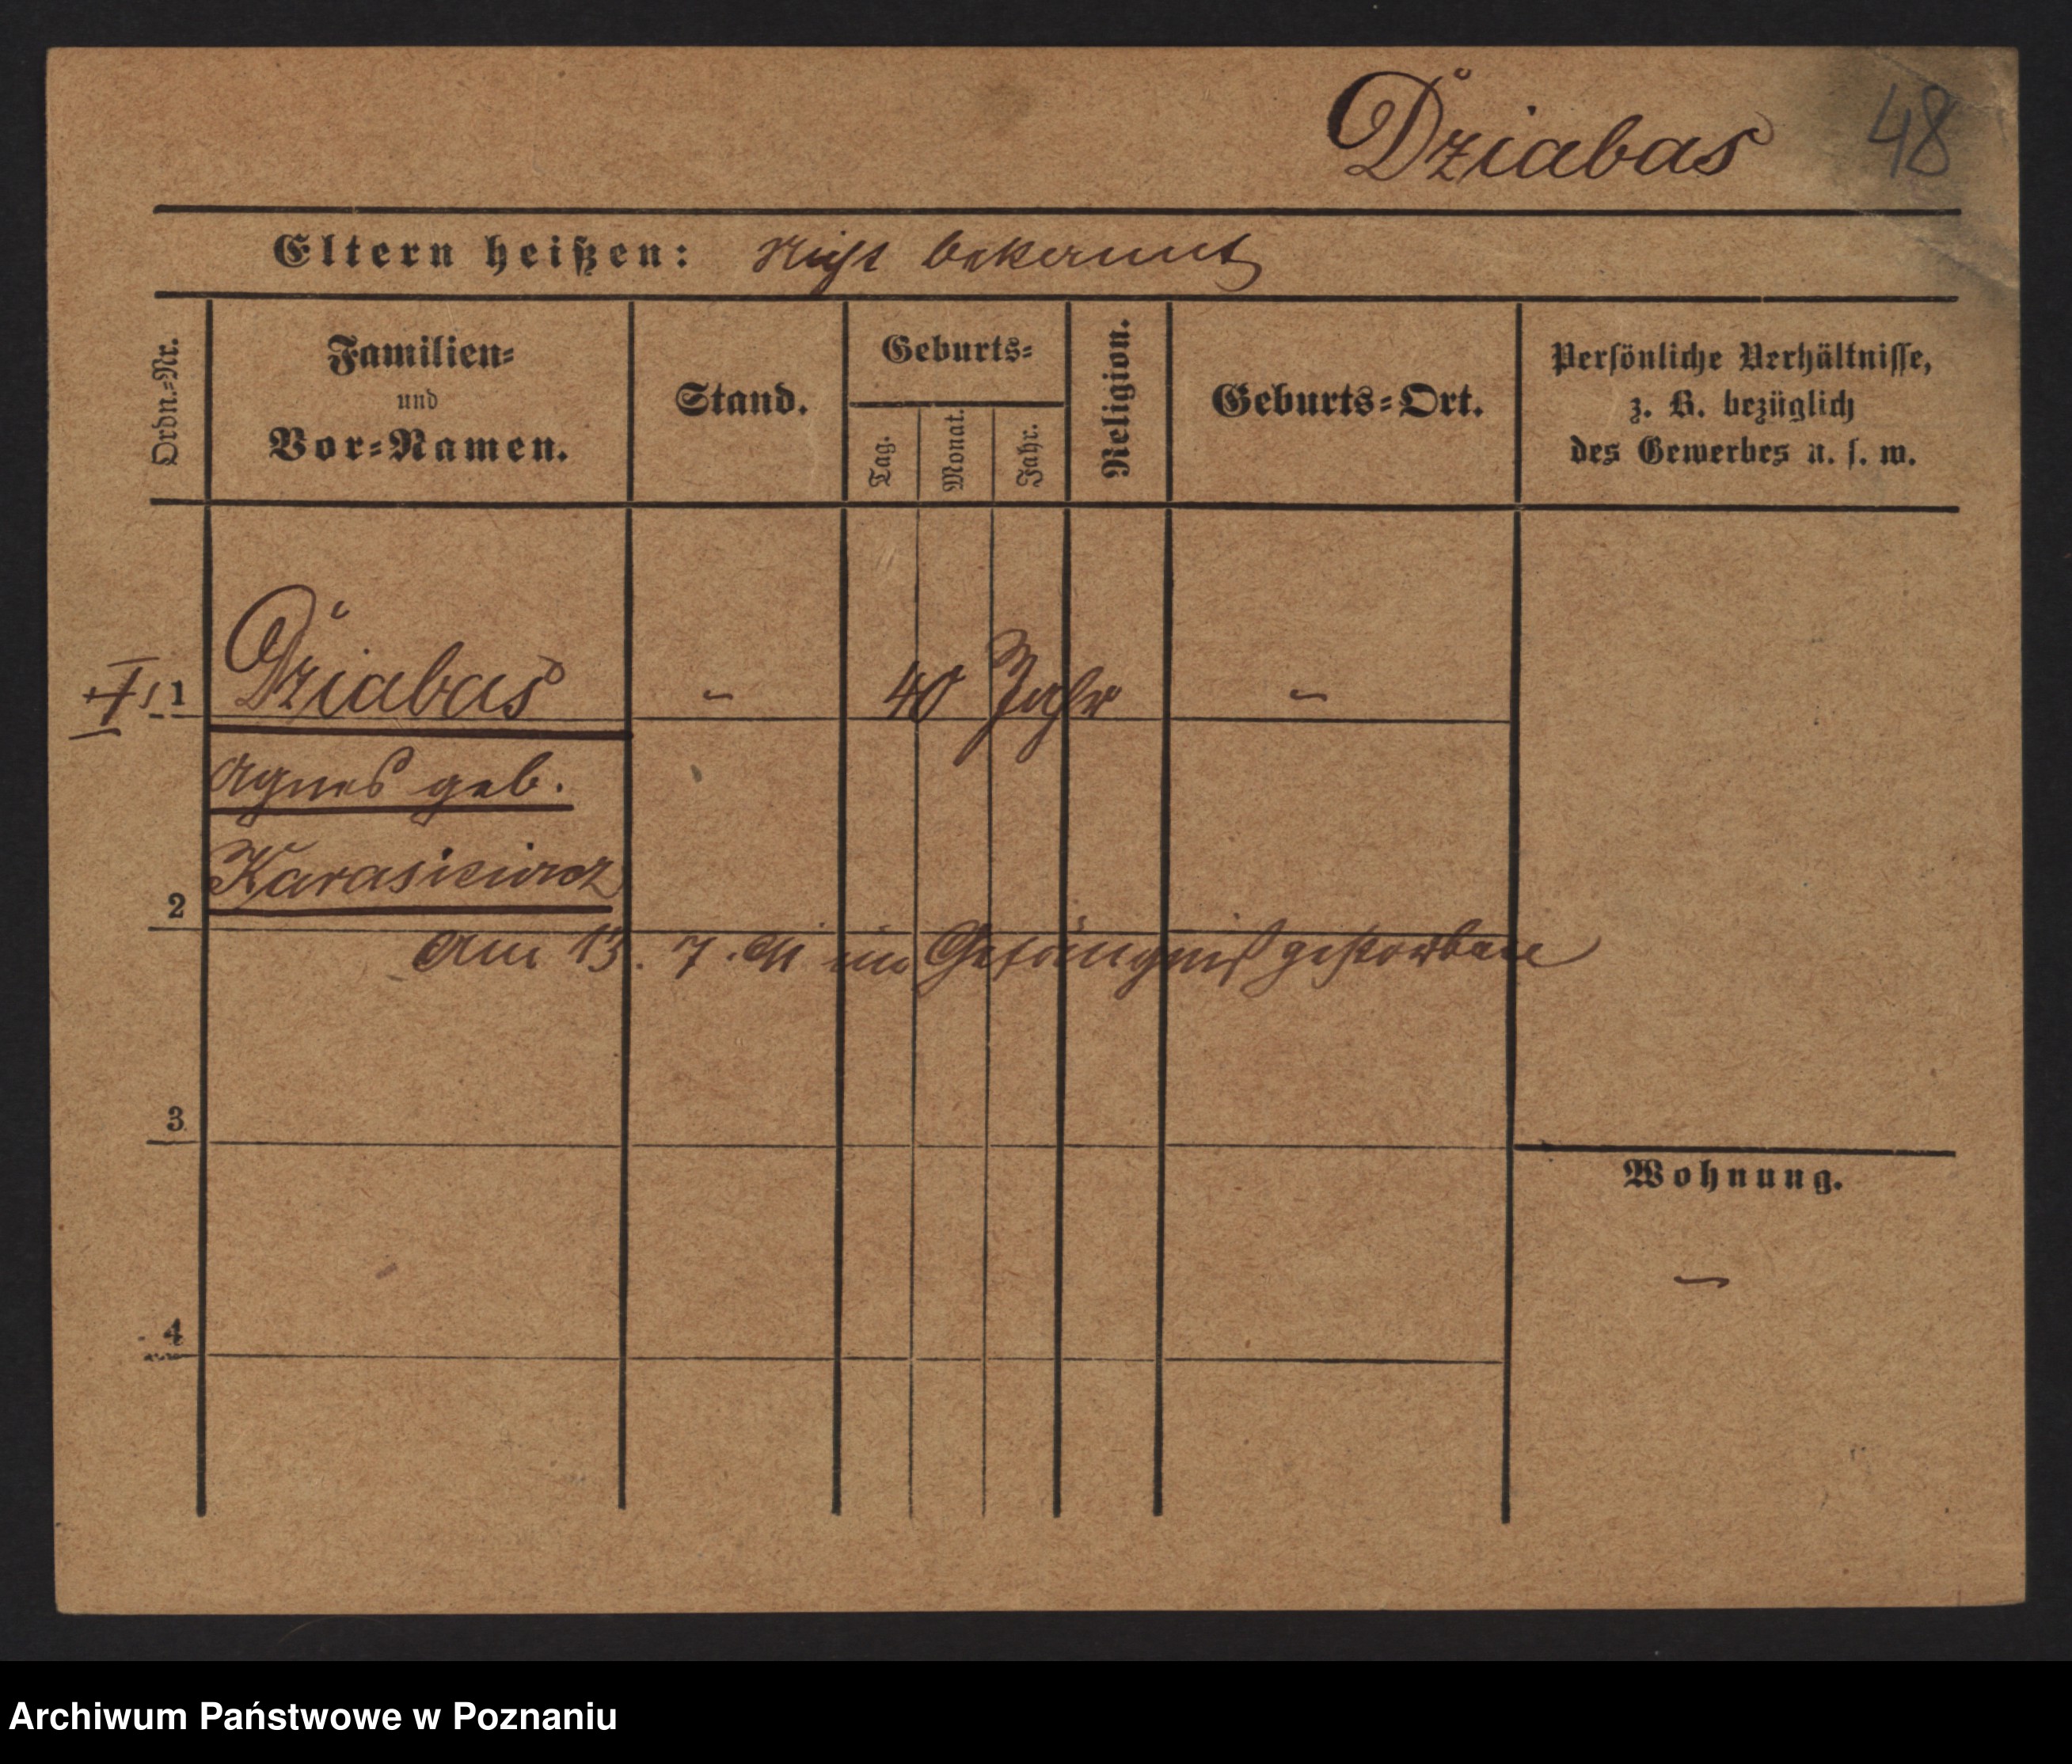 Dziabas 48
Eltern heißen: Nicht bekannt
Ordn.=Nr.
Familien=
und
Vor=Namen.
Stand.
Geburts=
Tag.
Monat.
Jahr.
Religion.
Geburts=Ort.
Persönliche Verhältnisse,
z. B. bezüglich
des Gewerbes u. s. w.
1 Dziabas - 40 Jahr -
Agnes geb.
2 Karasiewicz
Am 13. 7. im Gefängniß gestorben
3
Wohnung.
-
4
Archiwum Państwowe w Poznaniu